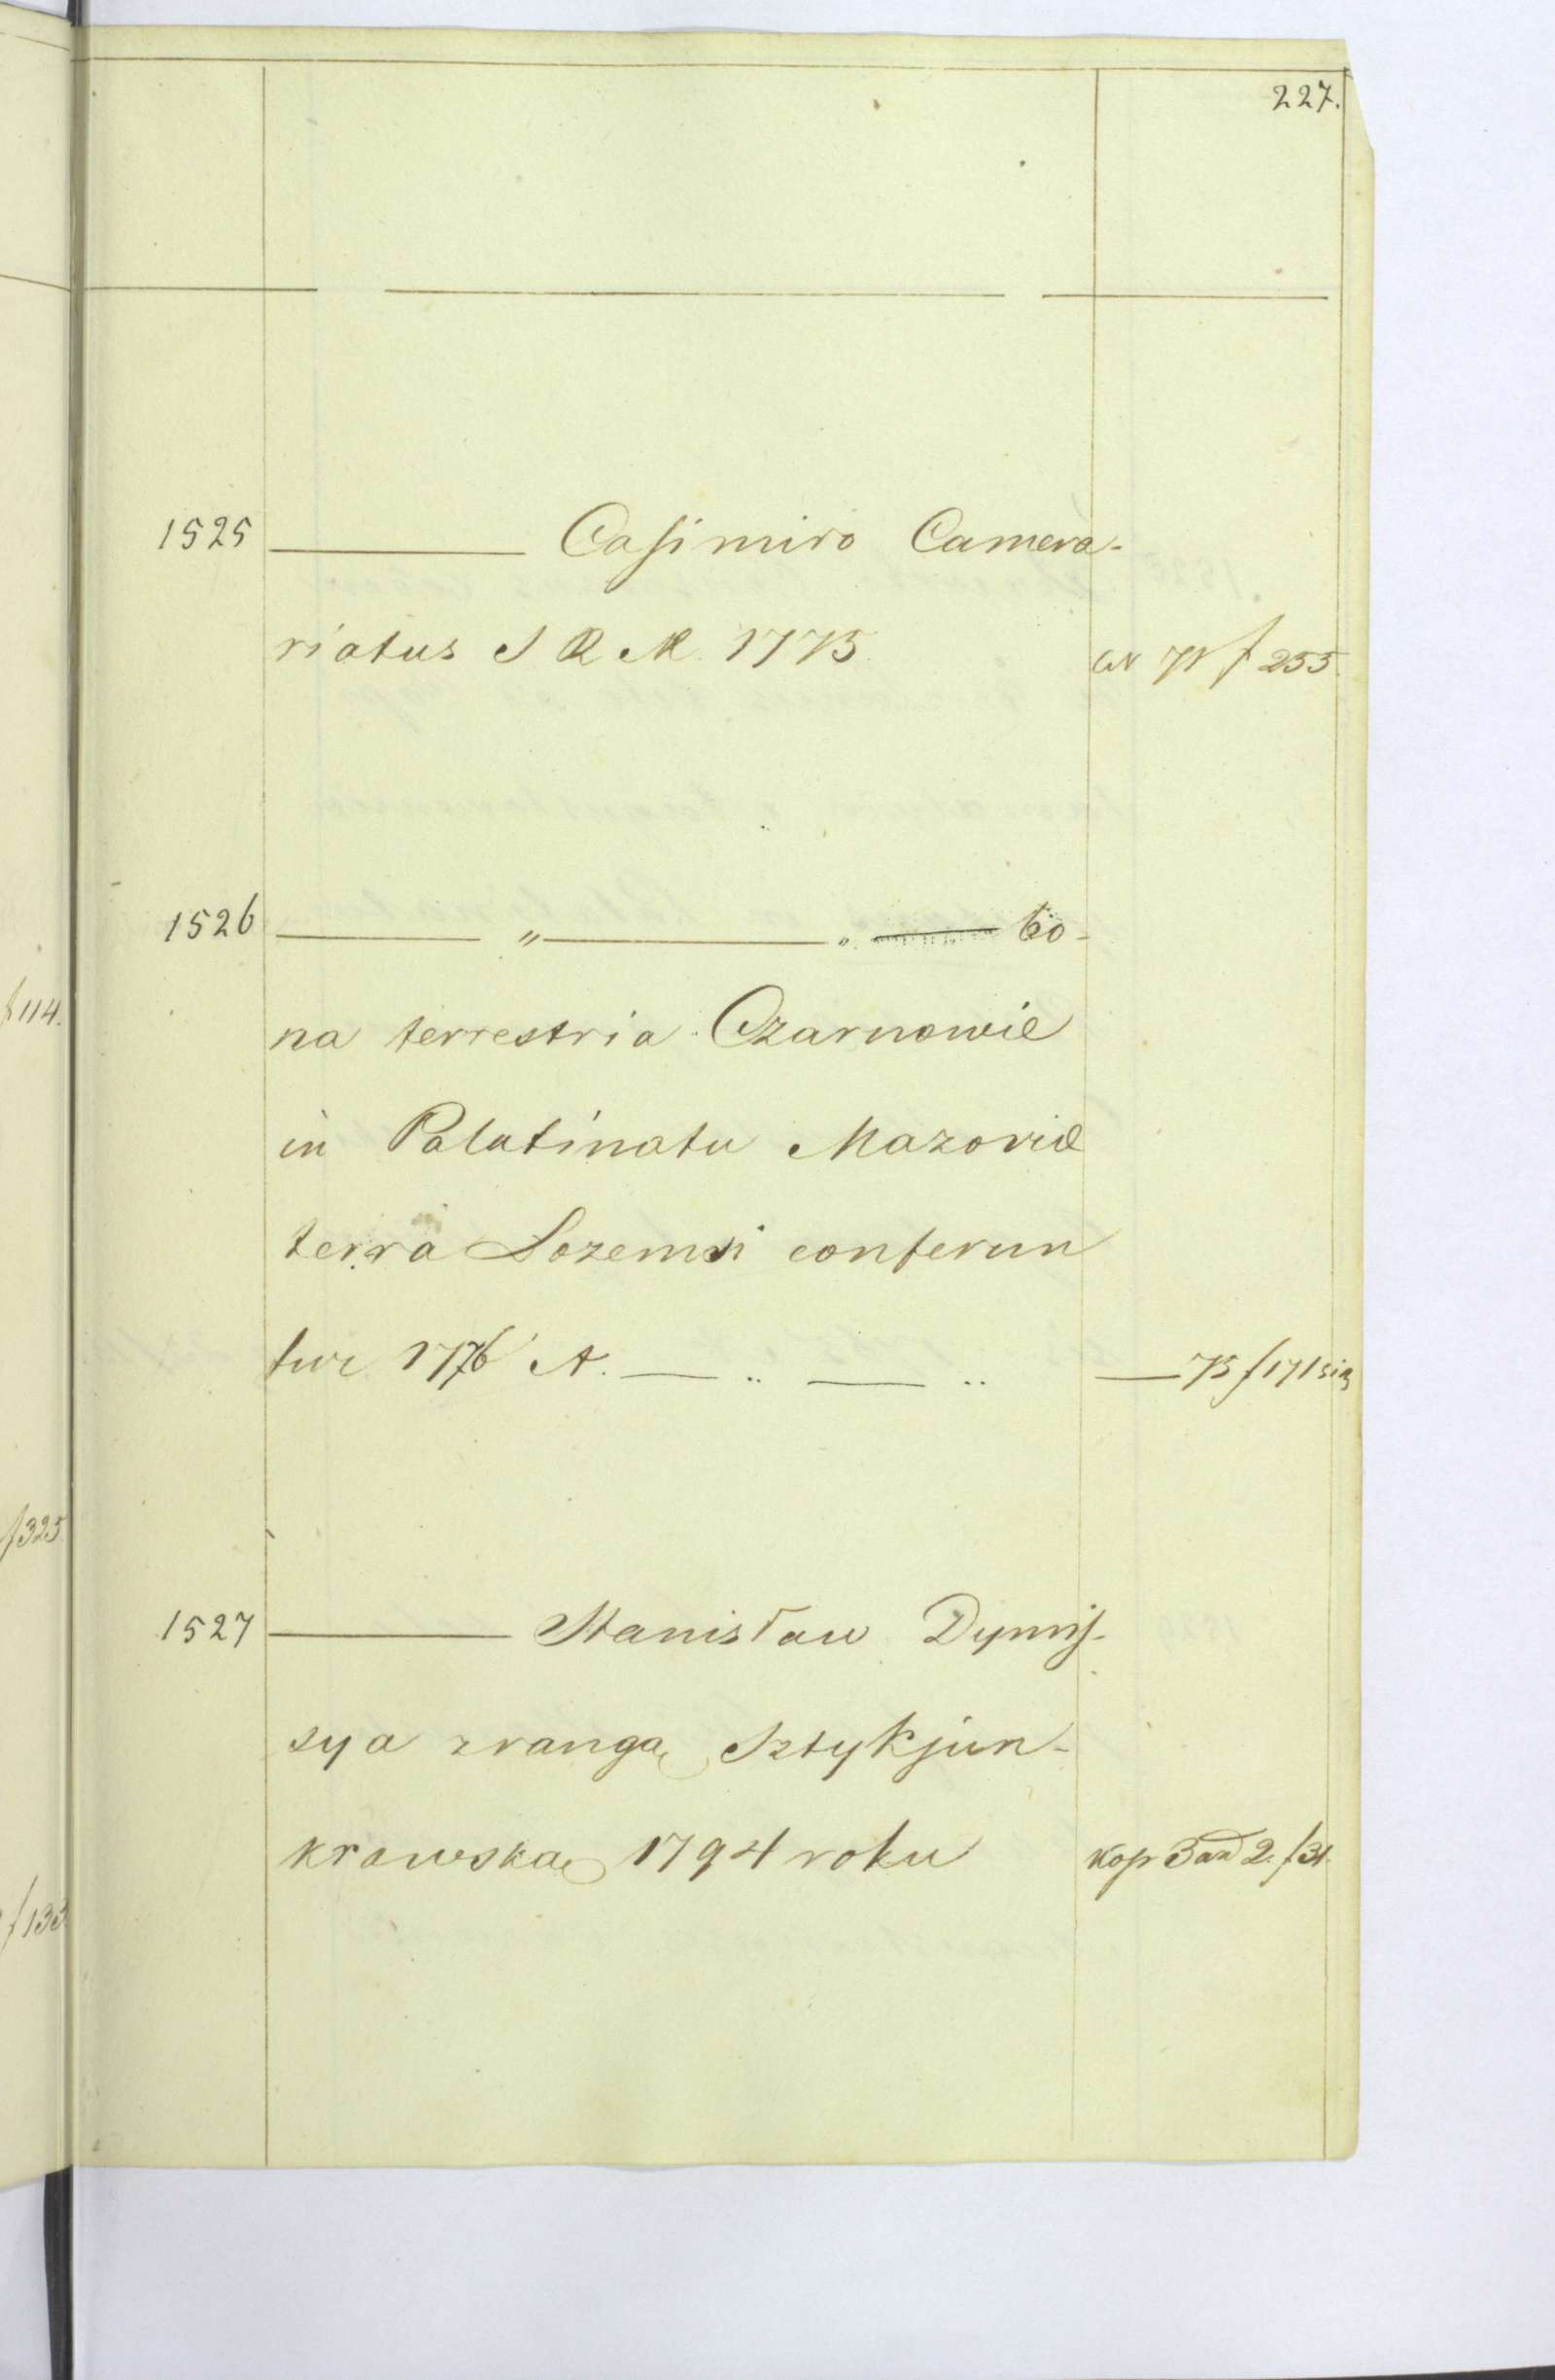 227.
1525 ——— Casimiro Camera-
riatus S R M. 1775
f 255.
1526 ——— „ ——— „ ——— bo-
na terrestria Czarnowie
in Palatinatu Mazoviæ
terra Łozemsi conferun
tur 1776 A. — „ — „ — 75 f 171
1527 ——— Stanisław Dymis-
sya z rangą Sztykjun-
krowską 1794 roku
kop 3 2. f 31.
f 114.
f 325
f 133